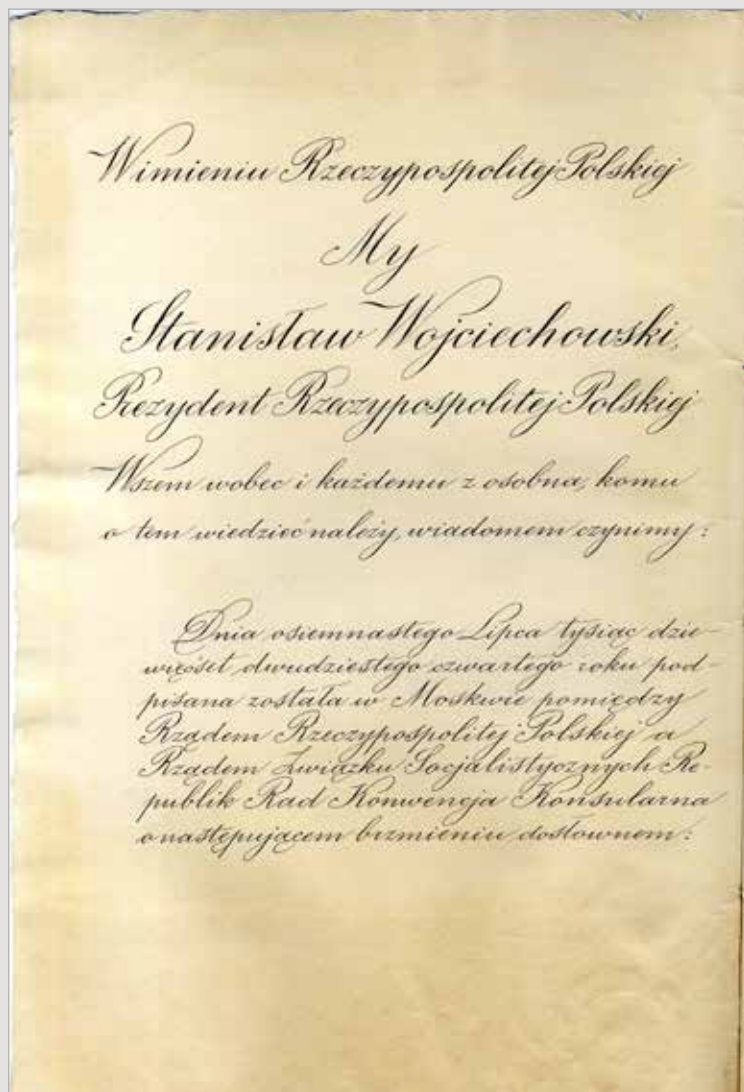 W imieniu Rzeczypospolitej Polskiej
My
Stanisław Wojciechowski,
Prezydent Rzeczypospolitej Polskiej
Wszem wobec i każdemu z osobna, komu
o tem wiedzieć należy, wiadomem czynimy:
Dnia osiemnastego Lipca tysiąc dzie-
więćset dwudziestego czwartego roku pod-
pisana została w Moskwie pomiędzy
Rządem Rzeczypospolitej Polskiej a
Rządem Związku Socjalistycznych Re-
publik Rad Konwencja Konsularna
o następującem brzmieniu dosłownem: